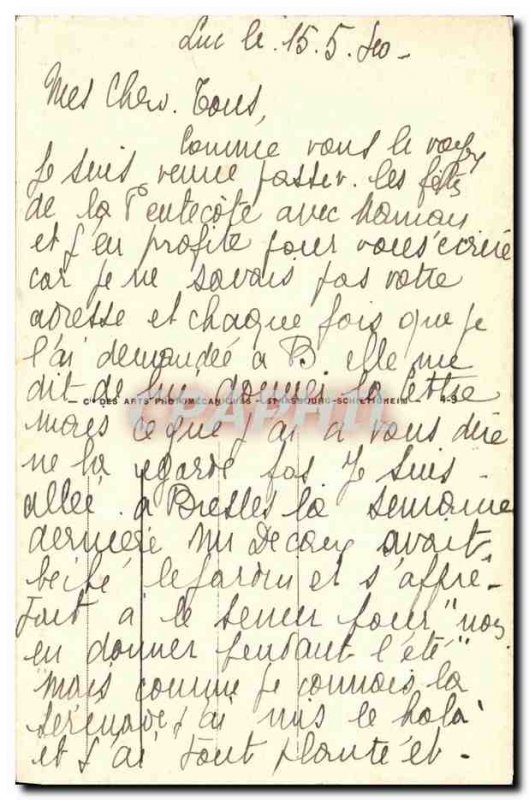 Luc le 15.5.
Mes Chers Tous,
Comme vous le voyez
Je suis venue passer les fêtes
de la Pentecôte avec maman
et j'en profite pour vous écrire
car je ne savais pas votre
adresse et chaque fois que je
l'ai demandée à B. elle me
dit de lui donner la lettre
mais ce que j'ai à vous dire
C^ie DES ARTS PHOTOMÉCANIQUES - STRASBOURG-SCHILTIGHEIM
ne la regarde pas Je suis
allée à Bresles la semaine
dernière Mr avait
bêché le jardin et s'apprê-
tait à le semer pour "nous
en donner pendant l'été"
mais comme je connais la
sérénade j'ai mis le holà
et j'ai tout planté et -
CPAPHIL